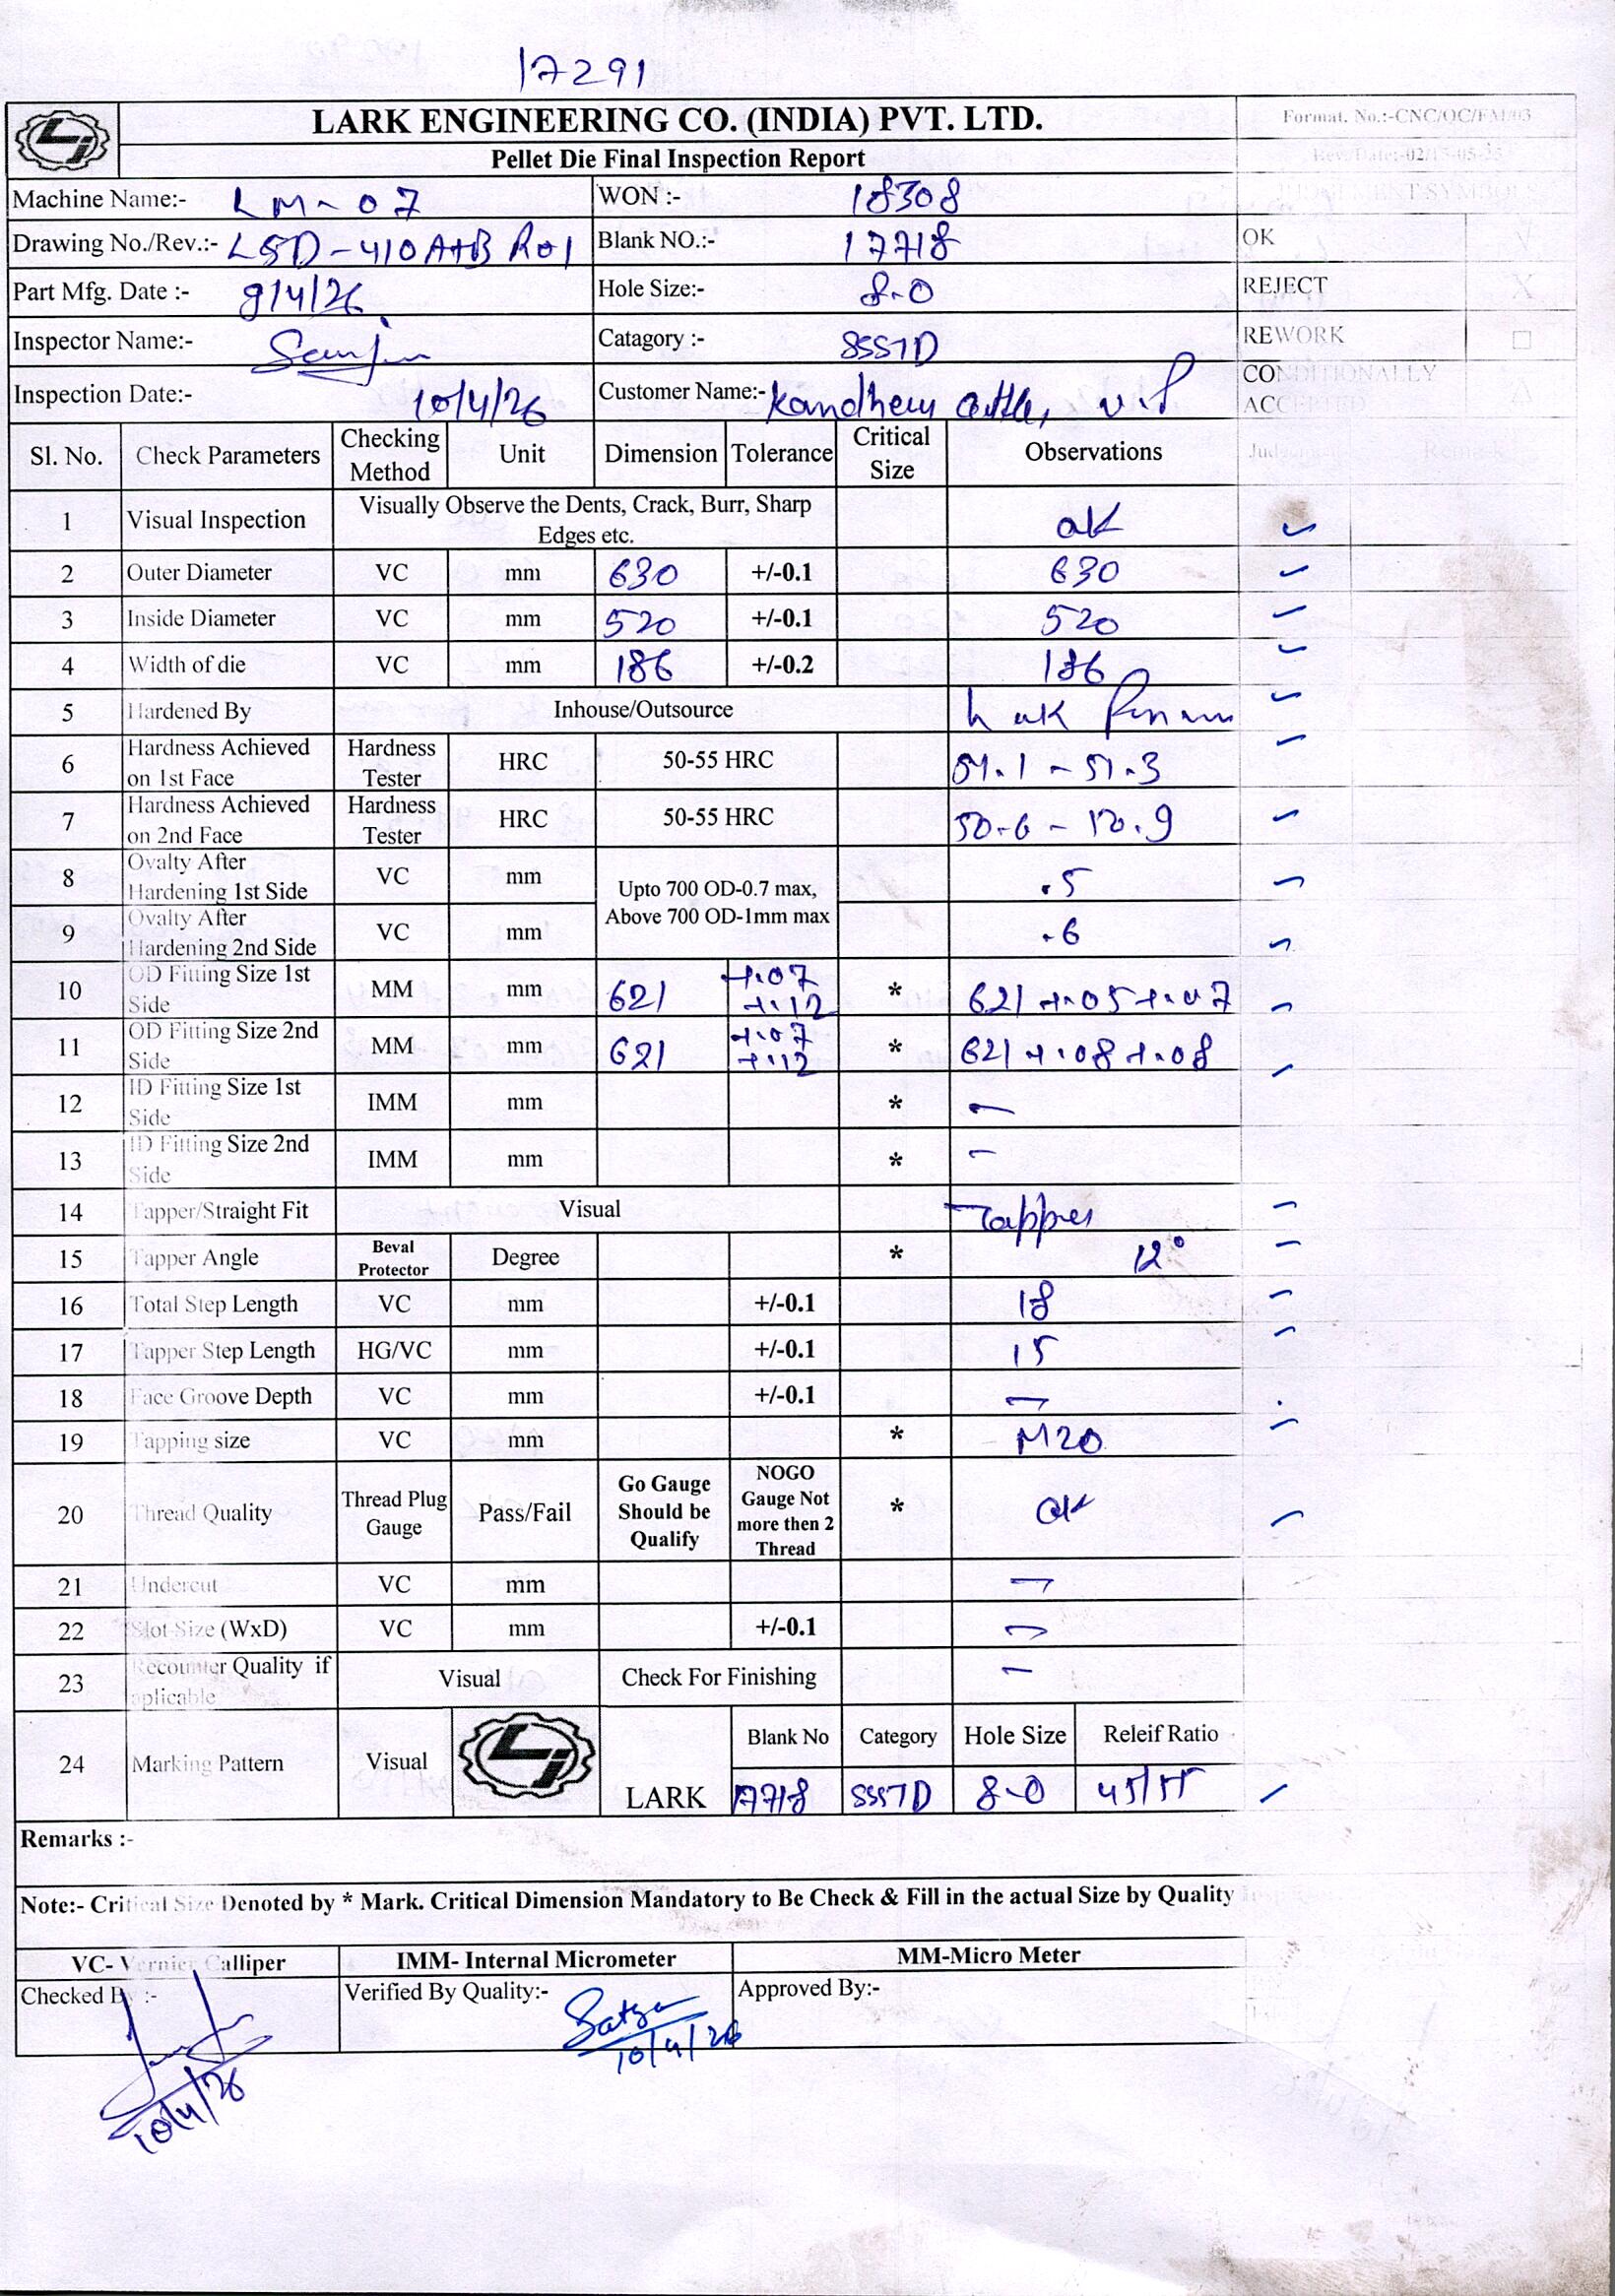 17291
LARK ENGINEERING CO. (INDIA) PVT. LTD.
Format. No.:-CNC/QC/FM/03
Pellet Die Final Inspection Report
Machine Name:- LM-07 WON :- 18308
Drawing No./Rev.:- LSD-410A+B R01 Blank NO.:- 17718 OK
Part Mfg. Date :- 9/4/26 Hole Size:- 8.0 REJECT X
Inspector Name:- Catagory :- SSSTD REWORK □
Inspection Date:- 10/4/26 Customer Name:- CONDITIONALLY ACCEPTED △
Sl. No. Check Parameters Checking Method Unit Dimension Tolerance Critical Size Observations Remark
1 Visual Inspection Visually Observe the Dents, Crack, Burr, Sharp Edges etc. ok
2 Outer Diameter VC mm 630 +/-0.1 630
3 Inside Diameter VC mm 520 +/-0.1 520
4 Width of die VC mm 186 +/-0.2 186
5 Hardened By Inhouse/Outsource
6 Hardness Achieved on 1st Face Hardness Tester HRC 50-55 HRC 51.1 - 51.3
7 Hardness Achieved on 2nd Face Hardness Tester HRC 50-55 HRC 50.6 - 50.9
8 Ovalty After Hardening 1st Side VC mm Upto 700 OD-0.7 max, Above 700 OD-1mm max .5
9 Ovalty After Hardening 2nd Side VC mm .6
10 OD Fitting Size 1st Side MM mm 621 +.07 +.12 * 621 +.05 +.07
11 OD Fitting Size 2nd Side MM mm 621 +.07 +.12 * 621 +.08 +.08
12 ID Fitting Size 1st Side IMM mm * -
13 ID Fitting Size 2nd Side IMM mm * -
14 Tapper/Straight Fit Visual Tapper
15 Tapper Angle Beval Protector Degree * 12°
16 Total Step Length VC mm +/-0.1 18
17 Tapper Step Length HG/VC mm +/-0.1 15
18 Face Groove Depth VC mm +/-0.1 -
19 Tapping size VC mm * M20
20 Thread Quality Thread Plug Gauge Pass/Fail Go Gauge Should be Qualify NOGO Gauge Not more then 2 Thread * ok
21 Undercut VC mm -
22 Slot Size (WxD) VC mm +/-0.1 -
23 Recounter Quality if aplicable Visual Check For Finishing -
24 Marking Pattern Visual LARK Blank No Category Hole Size Releif Ratio
17718 SSSTD 8.0 45/55
Remarks :-
Note:- Critical Size Denoted by * Mark. Critical Dimension Mandatory to Be Check & Fill in the actual Size by Quality
VC- Vernier Calliper IMM- Internal Micrometer MM-Micro Meter
Checked By :- Verified By Quality:- Approved By:-
10/4/26
10/4/26